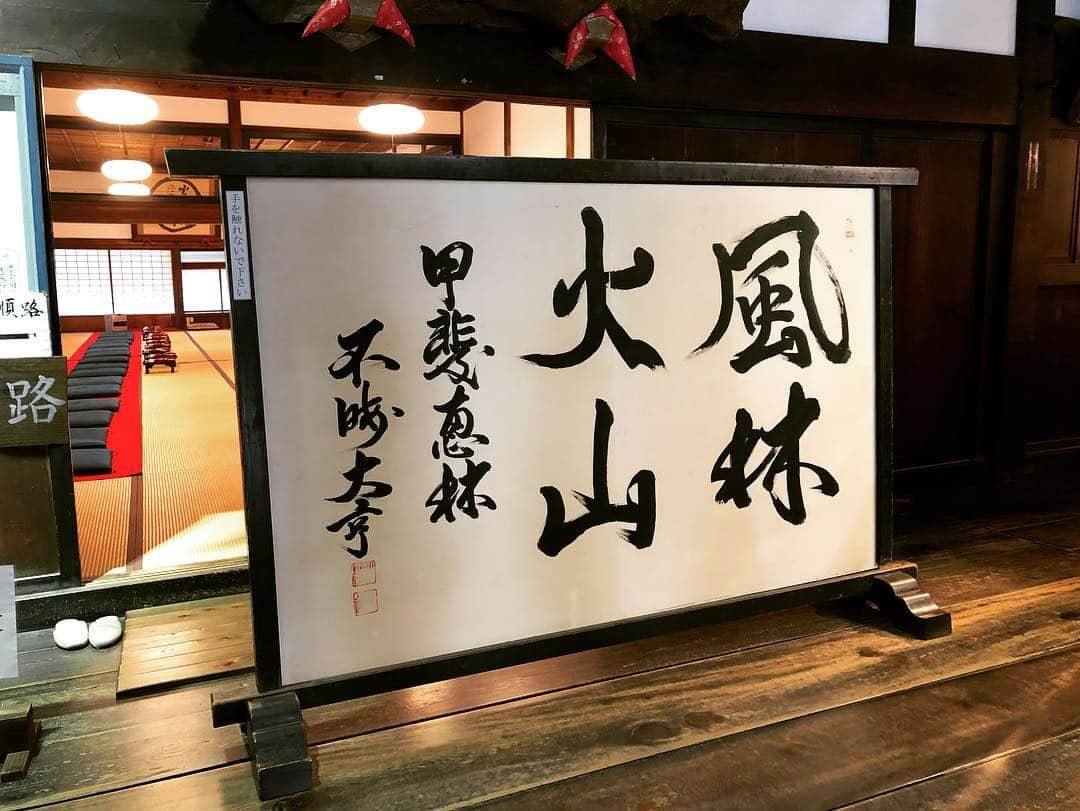 風林
火山
甲斐恵林
手を触れないで下さい
順路
路